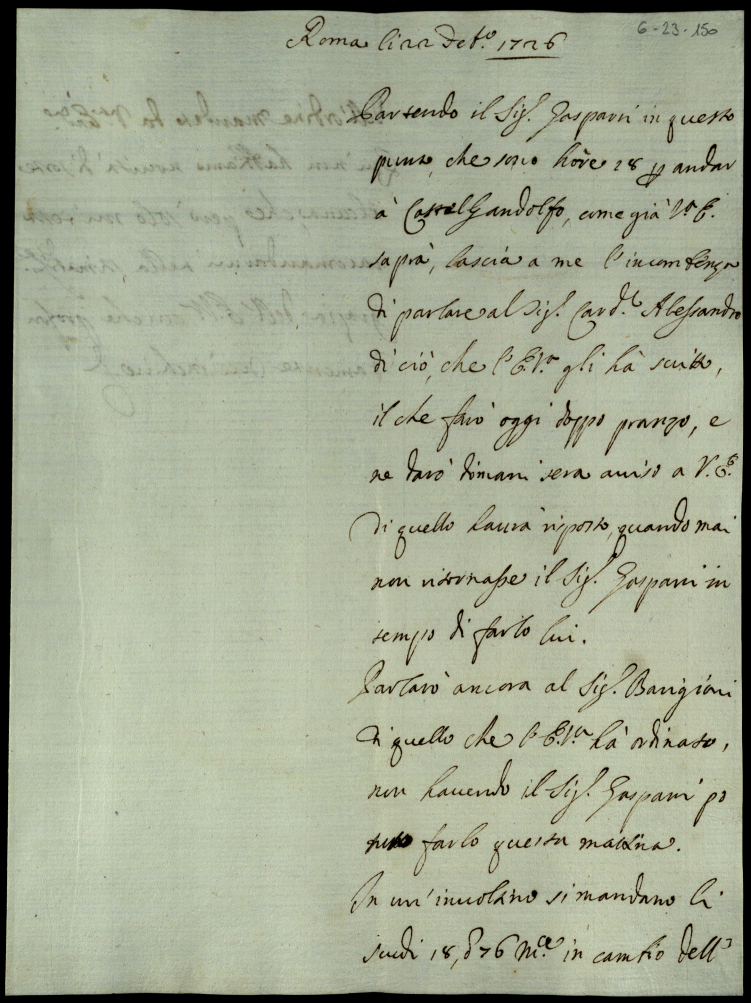 6-23-150
Roma li 22 Ott.e 1726
Partendo il Sig.r Gasparri in questo
punto, che sono hore 18 p andar
à Castel Gandolfo, come già V.a E.
saprà, lascia a me l'incumbenza
di parlare al Sig.r Card.le Alessandro
di ciò, che l'E.V.a gli hà scritto,
il che farò oggi doppo pranzo, e
ne darò dimani sera auuiso a V.E.
di quello haurà risposto, quando mai
non ritornasse il Sig.r Gasparri in
tempo di farlo lui.
Parlarò ancora al Sig.r Barigioni
di quello che l'E.V.a hà ordinato,
non hauendo il Sig.r Gasparri po
tuto farlo questa mattina.
In un'inuoltino si mandano li
scudi 18, 76 m.ta in cambio dell'